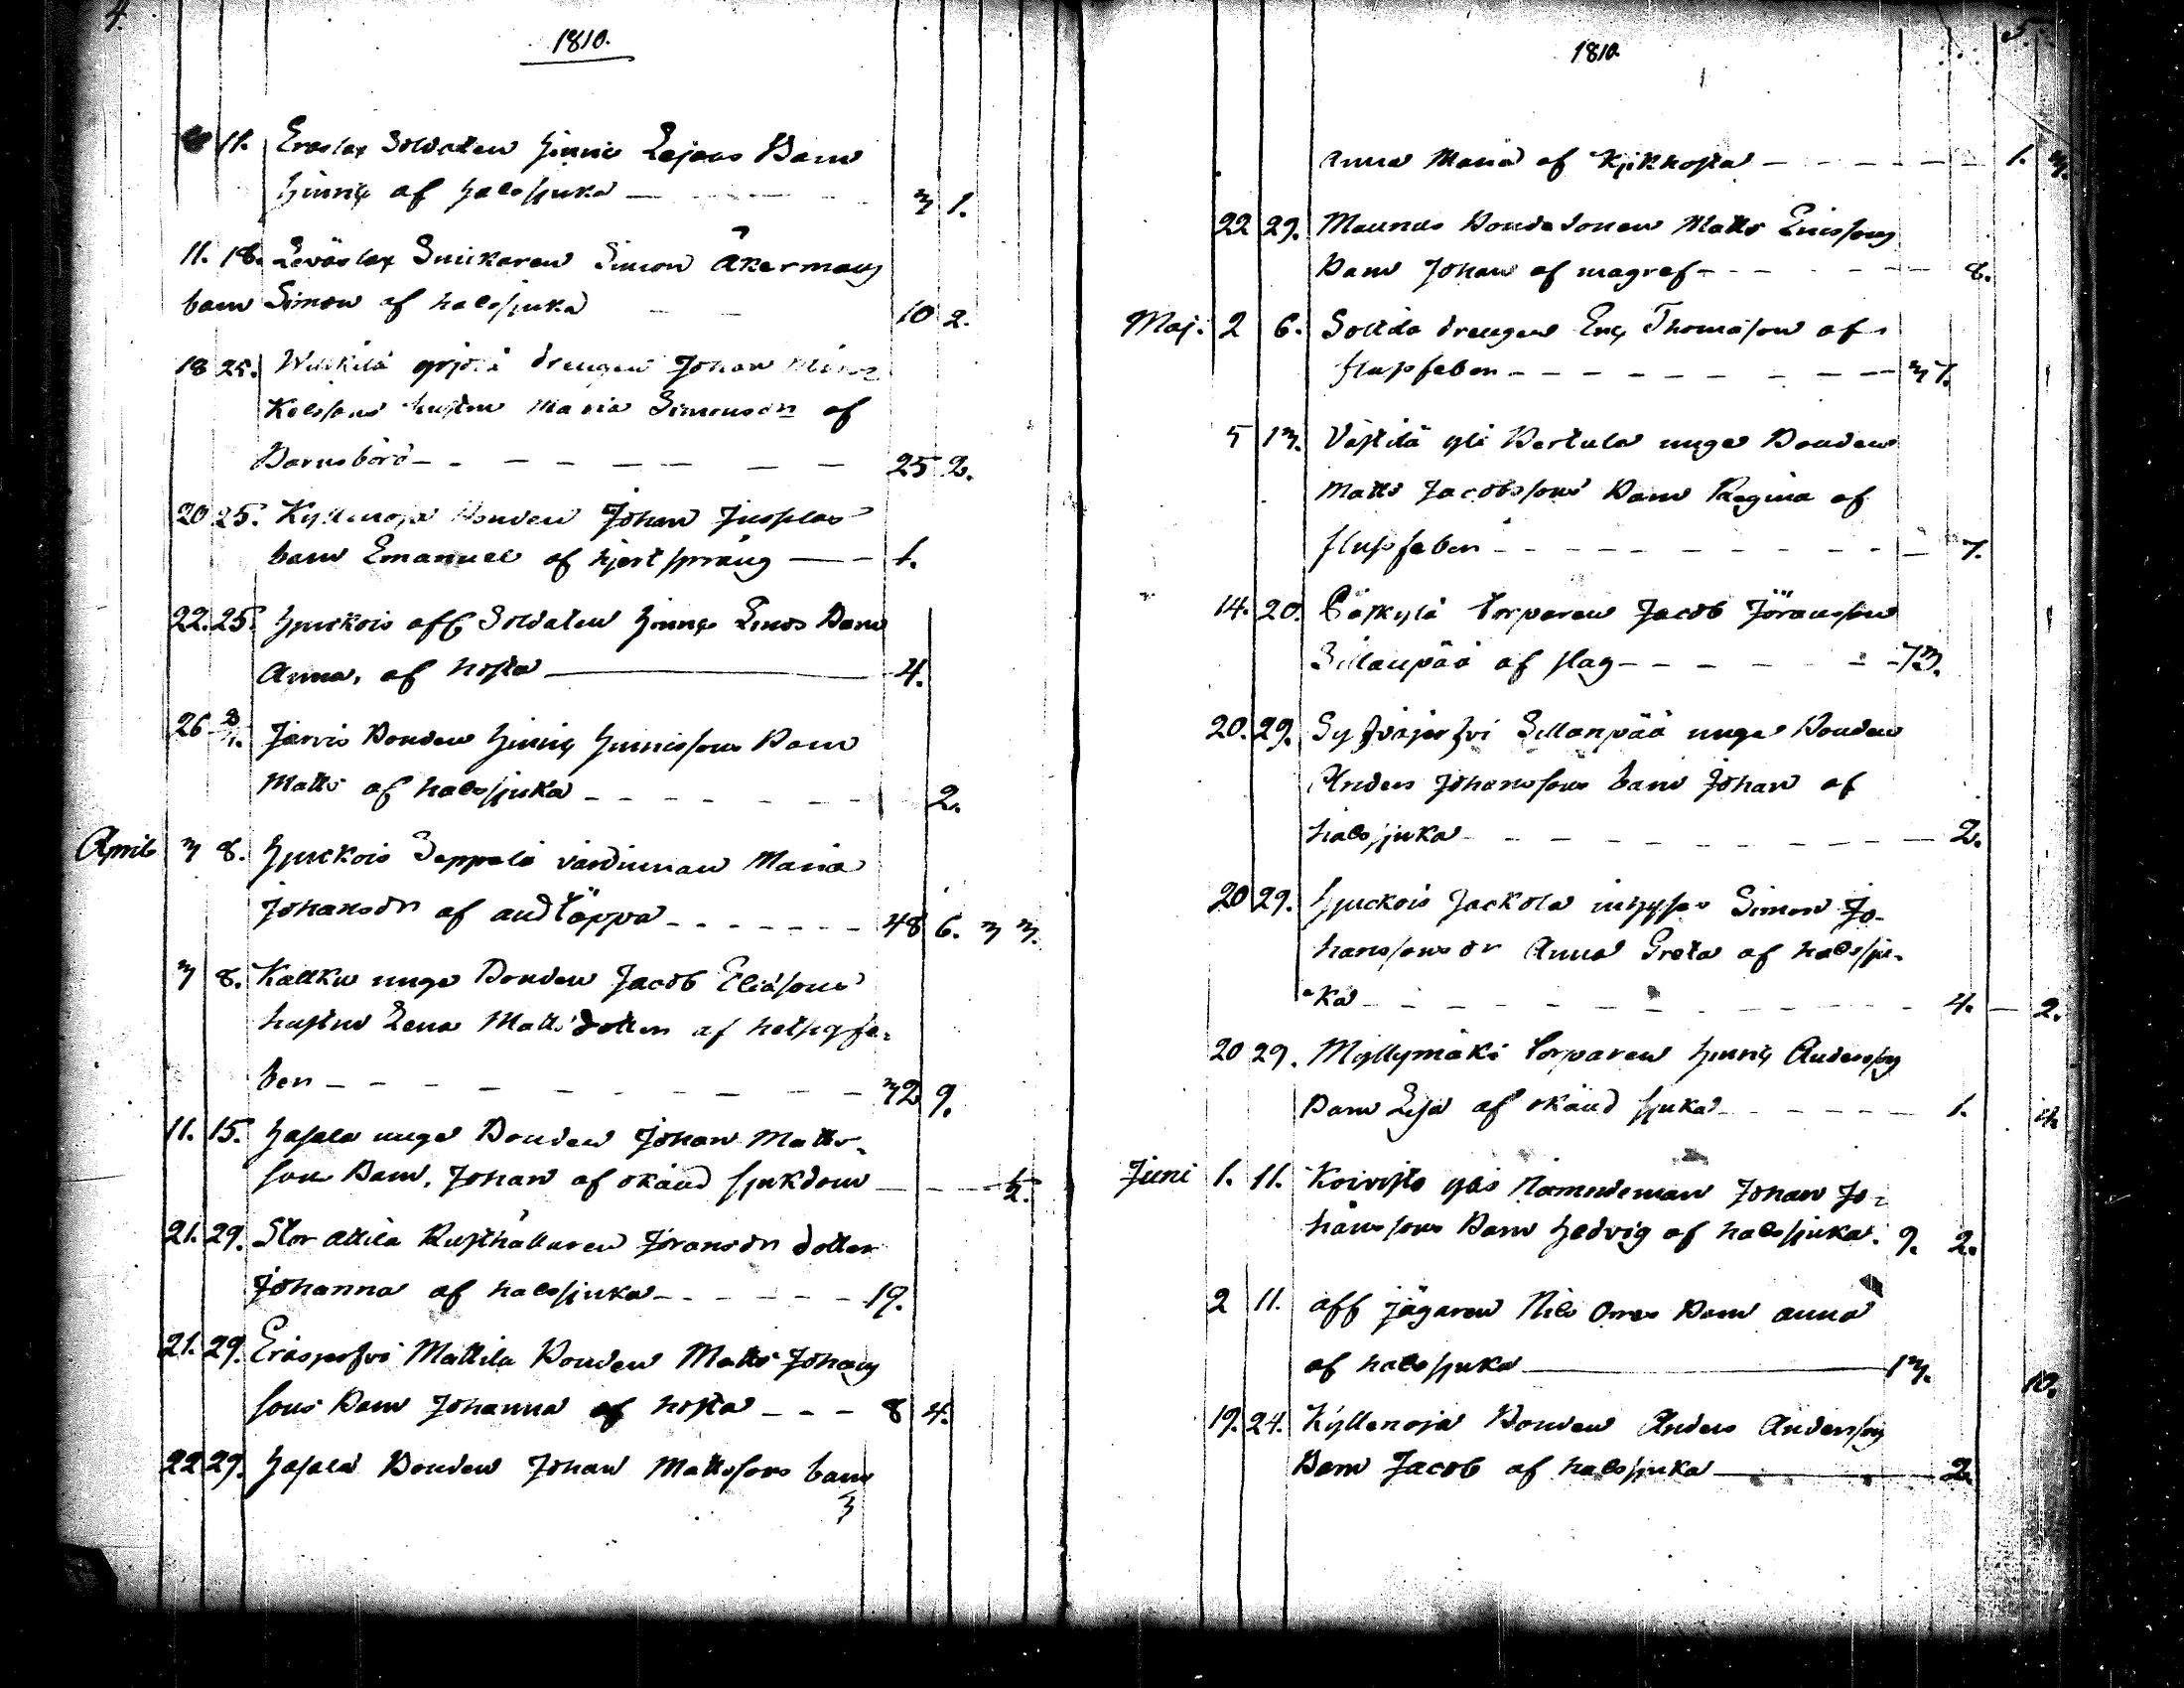 4.
1810.
11. Eräslax Soldaten Hinric Lejons Barn
Hinric af halssjuka — 3 1.
11. 18. Leväslax Snickaren Simon Åkermans
barn Simon af halssjuka — 10 2.
18 25. yrjölä drengen Johan
hustru Maria Simonsdr af
Barnsbörd — 25 2.
20 25. Kyllenoja Bonden Johan
barn Emanuel af hjertsprång — 1.
22. 25. Hjuckois aff Soldaten Hinric Barn
Anna, af hosta — 4.
26 Järvis Bonden Hinric Hinricssons Barn
Matts af halssjuka — 2.
April 3 8. Hjuckois Seppälä värdinnan Maria
Johansdr af andtäppa — 48 6. 3 3.
3 8. Kallku unge Bonden Jacob Eliassons
hustru Lena Mattsdotter af hetsigfe-
ber — 32 9.
11. 15. Hasala unge Bonden Johan Matts-
sons Barn, Johan af okänd sjukdom — 1/2.
21. 29. Stor Attila Rusthållaren Göransdr dotter
Johanna af halssjuka — 19.
21. 29. Eräsjerfvi Mattila Bonden Matts Johans
sons Barn Johanna af hosta — 8 4.
22 29. Hasala Bonden Johan Mattssons barn
5.
1810.
Anna Maria af Kjikhosta — 1. 3.
22 29. Maunus Bondesonen Matts Ericssons
Barn Johan af magref — 8.
Maj. 2 6. Sottila drengen Eric Thomasson af
flussfeber — 37.
5 13. Västilä yli Pertula unge Bonden
Matts Jacobssons Barn Regina af
flussfeber — 7.
14. 20. Päskylä torparen Jacob Jöransson
Sillanpää af slag — 73.
20. 29. Syfväjerfvi Sillanpää unge Bonden
Anders Johanssons barn Johan af
halssjuka — 2.
20 29. Hjuckois Jackola inhyses Simon Jo-
hanssons dr Anna Greta af halssju-
ka — 4. — 2.
20 29. Myllymäki torparen Hinric Anderssons
Barn Lisa af okänd sjuka — 1.
Juni 1. 11. Koivisto yli Nämndeman Johan Jo-
hanssons Barn Hedvig af halssjuka. 9. 2.
2 11. aff jägaren Nils Orres Barn Anna
af halssjuka — 13. 10.
19. 24. Kyllenoja Bonden Anders Anderssons
Barn Jacob af halssjuka — 2